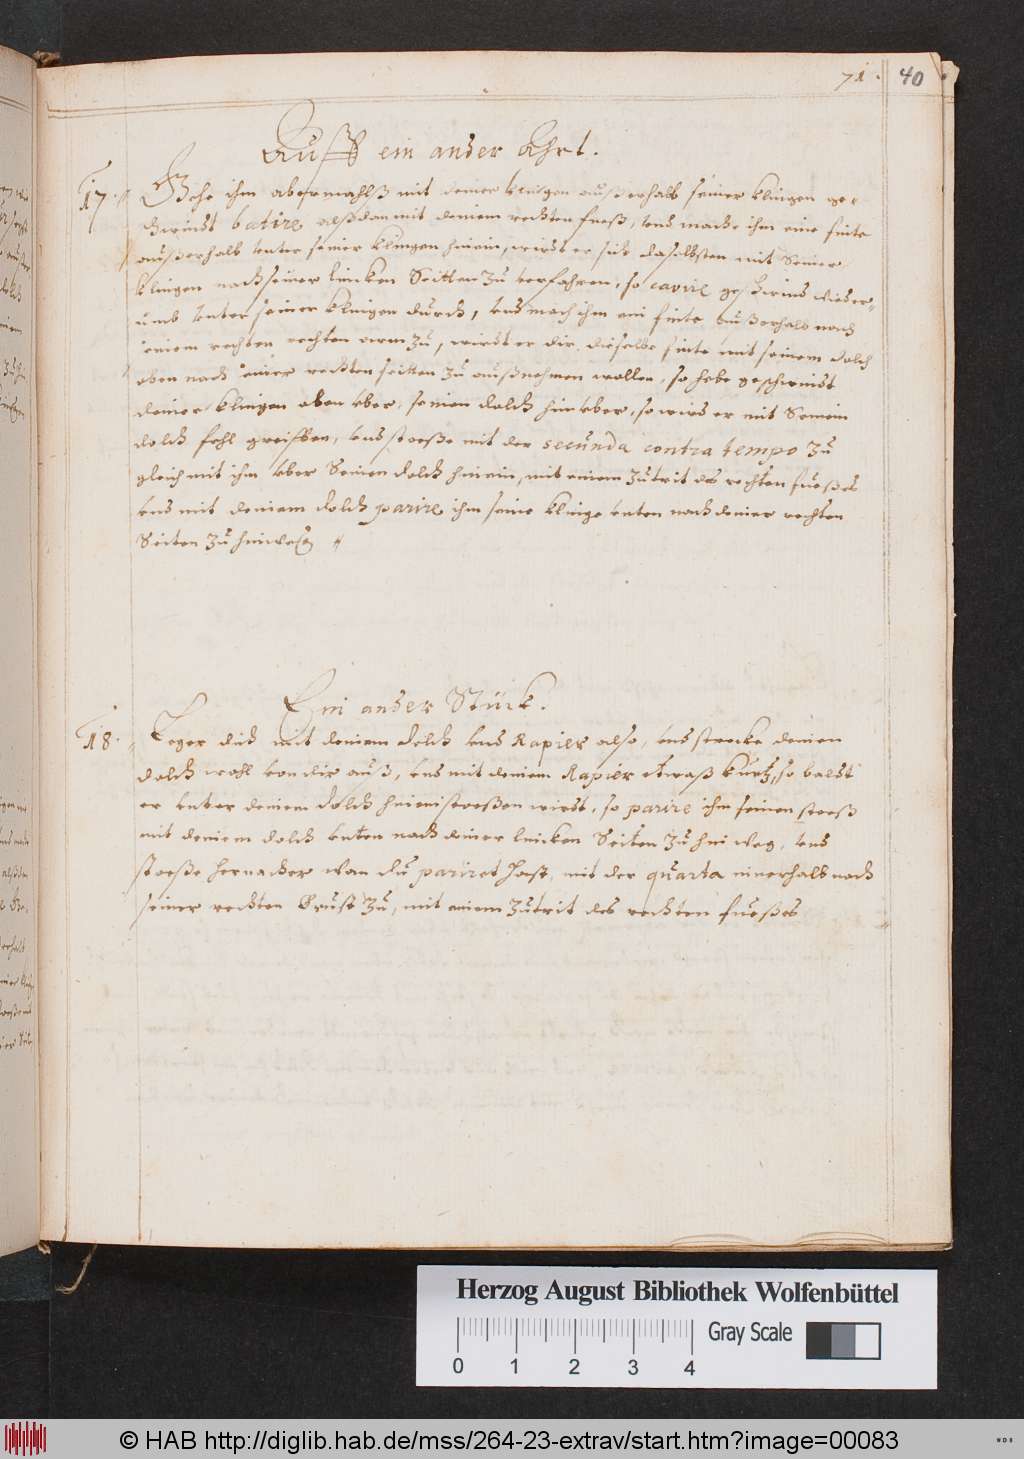 71.
40
Auff ein ander Ahrt.
17. Gehe ihm abermahlß mit deiner klingen außerhalb seiner klingen ge-
schwindt batire alßdan mit deinem rechten fueß, und mache ihm eine finte
außerhalb unter seiner klingen hinein, wirdt er sich daselbsten mit Seiner
klingen nach seiner lincken Seitten zu verfahren, so cavire geschwind wieder-
umb unter seiner klingen durch, und mach ihm ein finte außerhalb nach
seinem rechten rechten arm zu, wirdt er dir dieselbe finte mit seinem dolch
oben nach seiner rechten seitten zu außnehmen wollen, so hebe geschwindt
deine klingen oben uber seinen dolch hinuber, so wird er mit Seinem
dolch fehl greiffen, und stoeße mit der secunda contra tempo zu
gleich mit ihm uber Seinen dolch hinein, mit einem zutrit des rechten fueßes
und mit deinem dolch parire ihm seine klinge unten nach deiner rechten
Seiten zu hinweg
Ein ander Stück.
18. Leger dich mit deinem dolch und Rapier also, und strecke deinen
dolch wohl von dir auß, und mit deinem Rapier etwaß kurtz, so baldt
er unter deinem dolch hinein stoeßen wirdt, so parire ihm seinen stoeß
mit deinem dolch unten nach deiner lincken Seiten zu hin weg, und
stoeße hernacher wan du pariret hast, mit der quarta innerhalb nach
seiner rechten Brust zu, mit einem zutrit des rechten fueßes
Herzog August Bibliothek Wolfenbüttel
Gray Scale
0 1 2 3 4
© HAB http://diglib.hab.de/mss/264-23-extrav/start.htm?image=00083